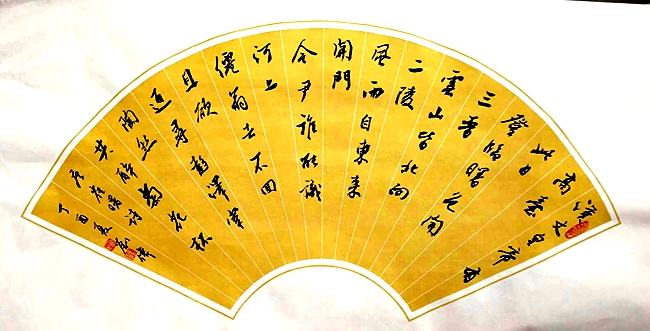 漢文皇帝有
高臺此日
登臨曙色開
三晉
雲山皆北向
二陵
風雨自東來
開門
令尹誰能識
河上
僊翁去不回
且欲
近尋彭澤宰
陶然
共醉菊花杯
唐崔曙詩
丁酉夏